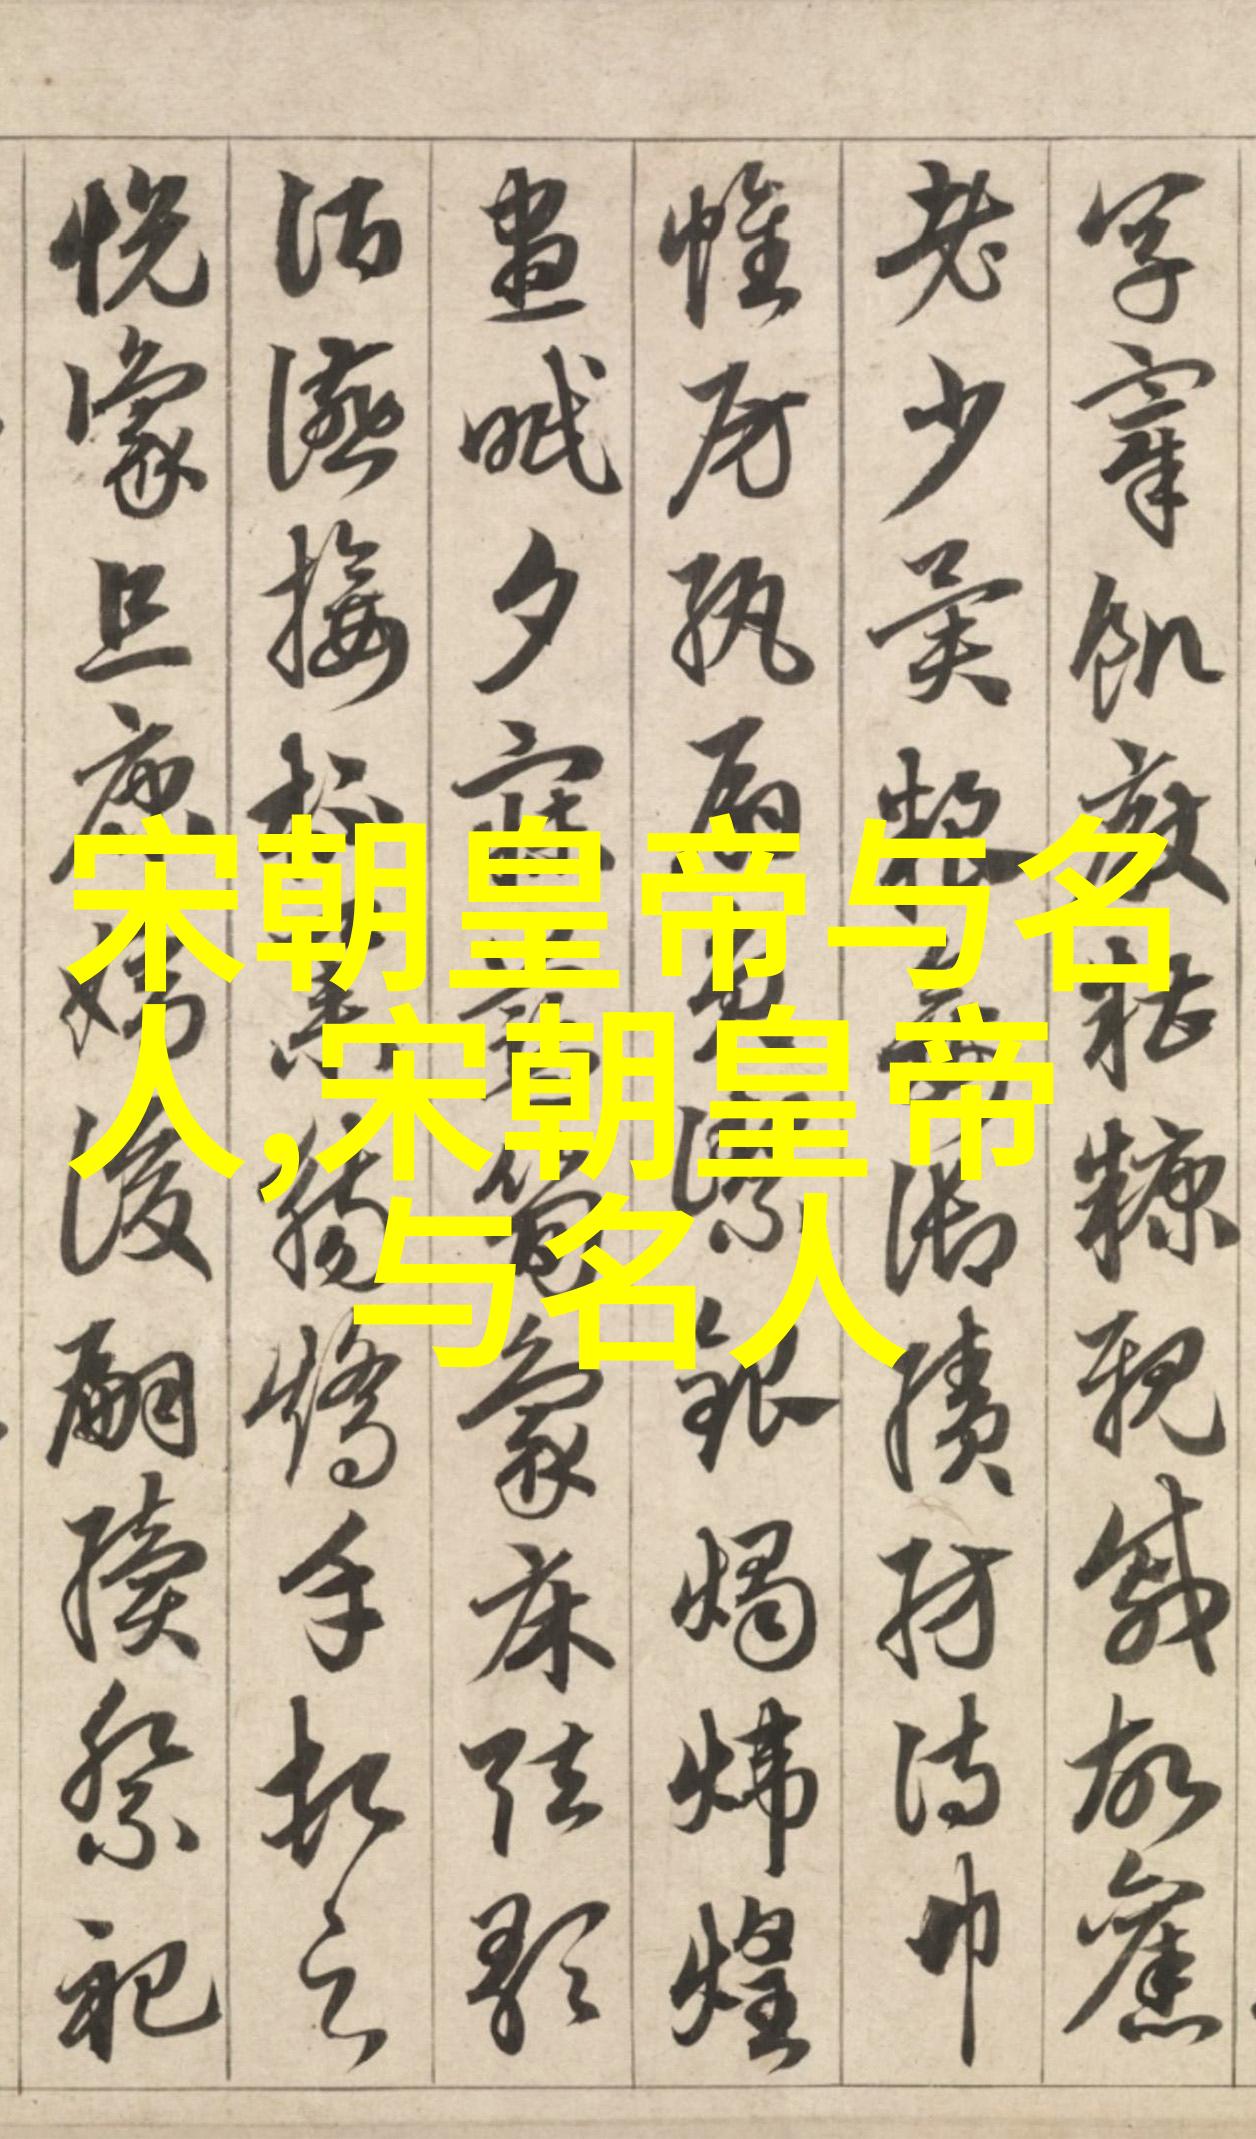 宋朝皇帝与名
人,宋朝皇帝
与名人
宰飢厭糟糠親戚故舊
老少異粮妾御績紡侍巾
帷房紈扇員潔銀燭煒煌
晝眠夕寐藍筍象床弦歌
酒讌接杯舉觴矯手頓足
悅豫且康嫡後嗣續祭祀